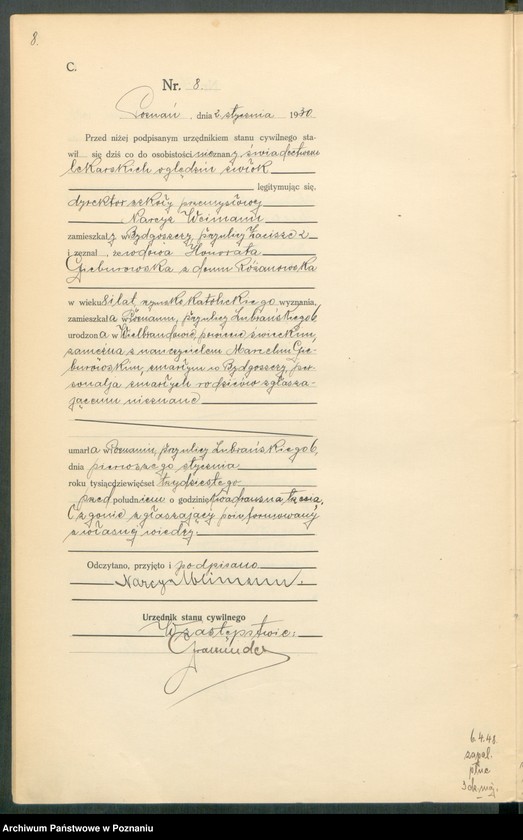 8.
C.
Nr. 8.
Poznań, dnia 2. stycznia 1930
Przed niżej podpisanym urzędnikiem stanu cywilnego sta-
wił się dziś co do osobistości nieznany, świadectwem
lekarskich oględzin zwłok
legitymując się,
dyrektor szkoły przemysłowej
Narcyz Weimann
zamieszkały w Bydgoszczy, przy ulicy Zacisze 2
i zeznał, że wdowa Honorata
Gieburowska z domu Różanowska
w wieku lat, rzymsko katolickiego wyznania,
zamieszkała w Poznaniu, przy ulicy Lubrańskiego 6,
urodzona w powiecie świeckim,
zamężna z nauczycielem Marcelim Gie-
burowskim, zmarłym w Bydgoszczy, per-
sonalja zmarłych rodziców zgłasza-
jącemu nieznane
umarła w Poznaniu, przy ulicy Lubrańskiego 6,
dnia pierwszego stycznia
roku tysiącdziewięćset trzydziestego
przed południem o godzinie kwadrans na trzecią.
O zgonie zgłaszający poinformowany
z własnej wiedzy.
Odczytano, przyjęto i podpisano
Narcyz Weimann.
Urzędnik stanu cywilnego
W zastępstwie:
6.4.48.
zapal.
płuc
Archiwum Państwowe w Poznaniu